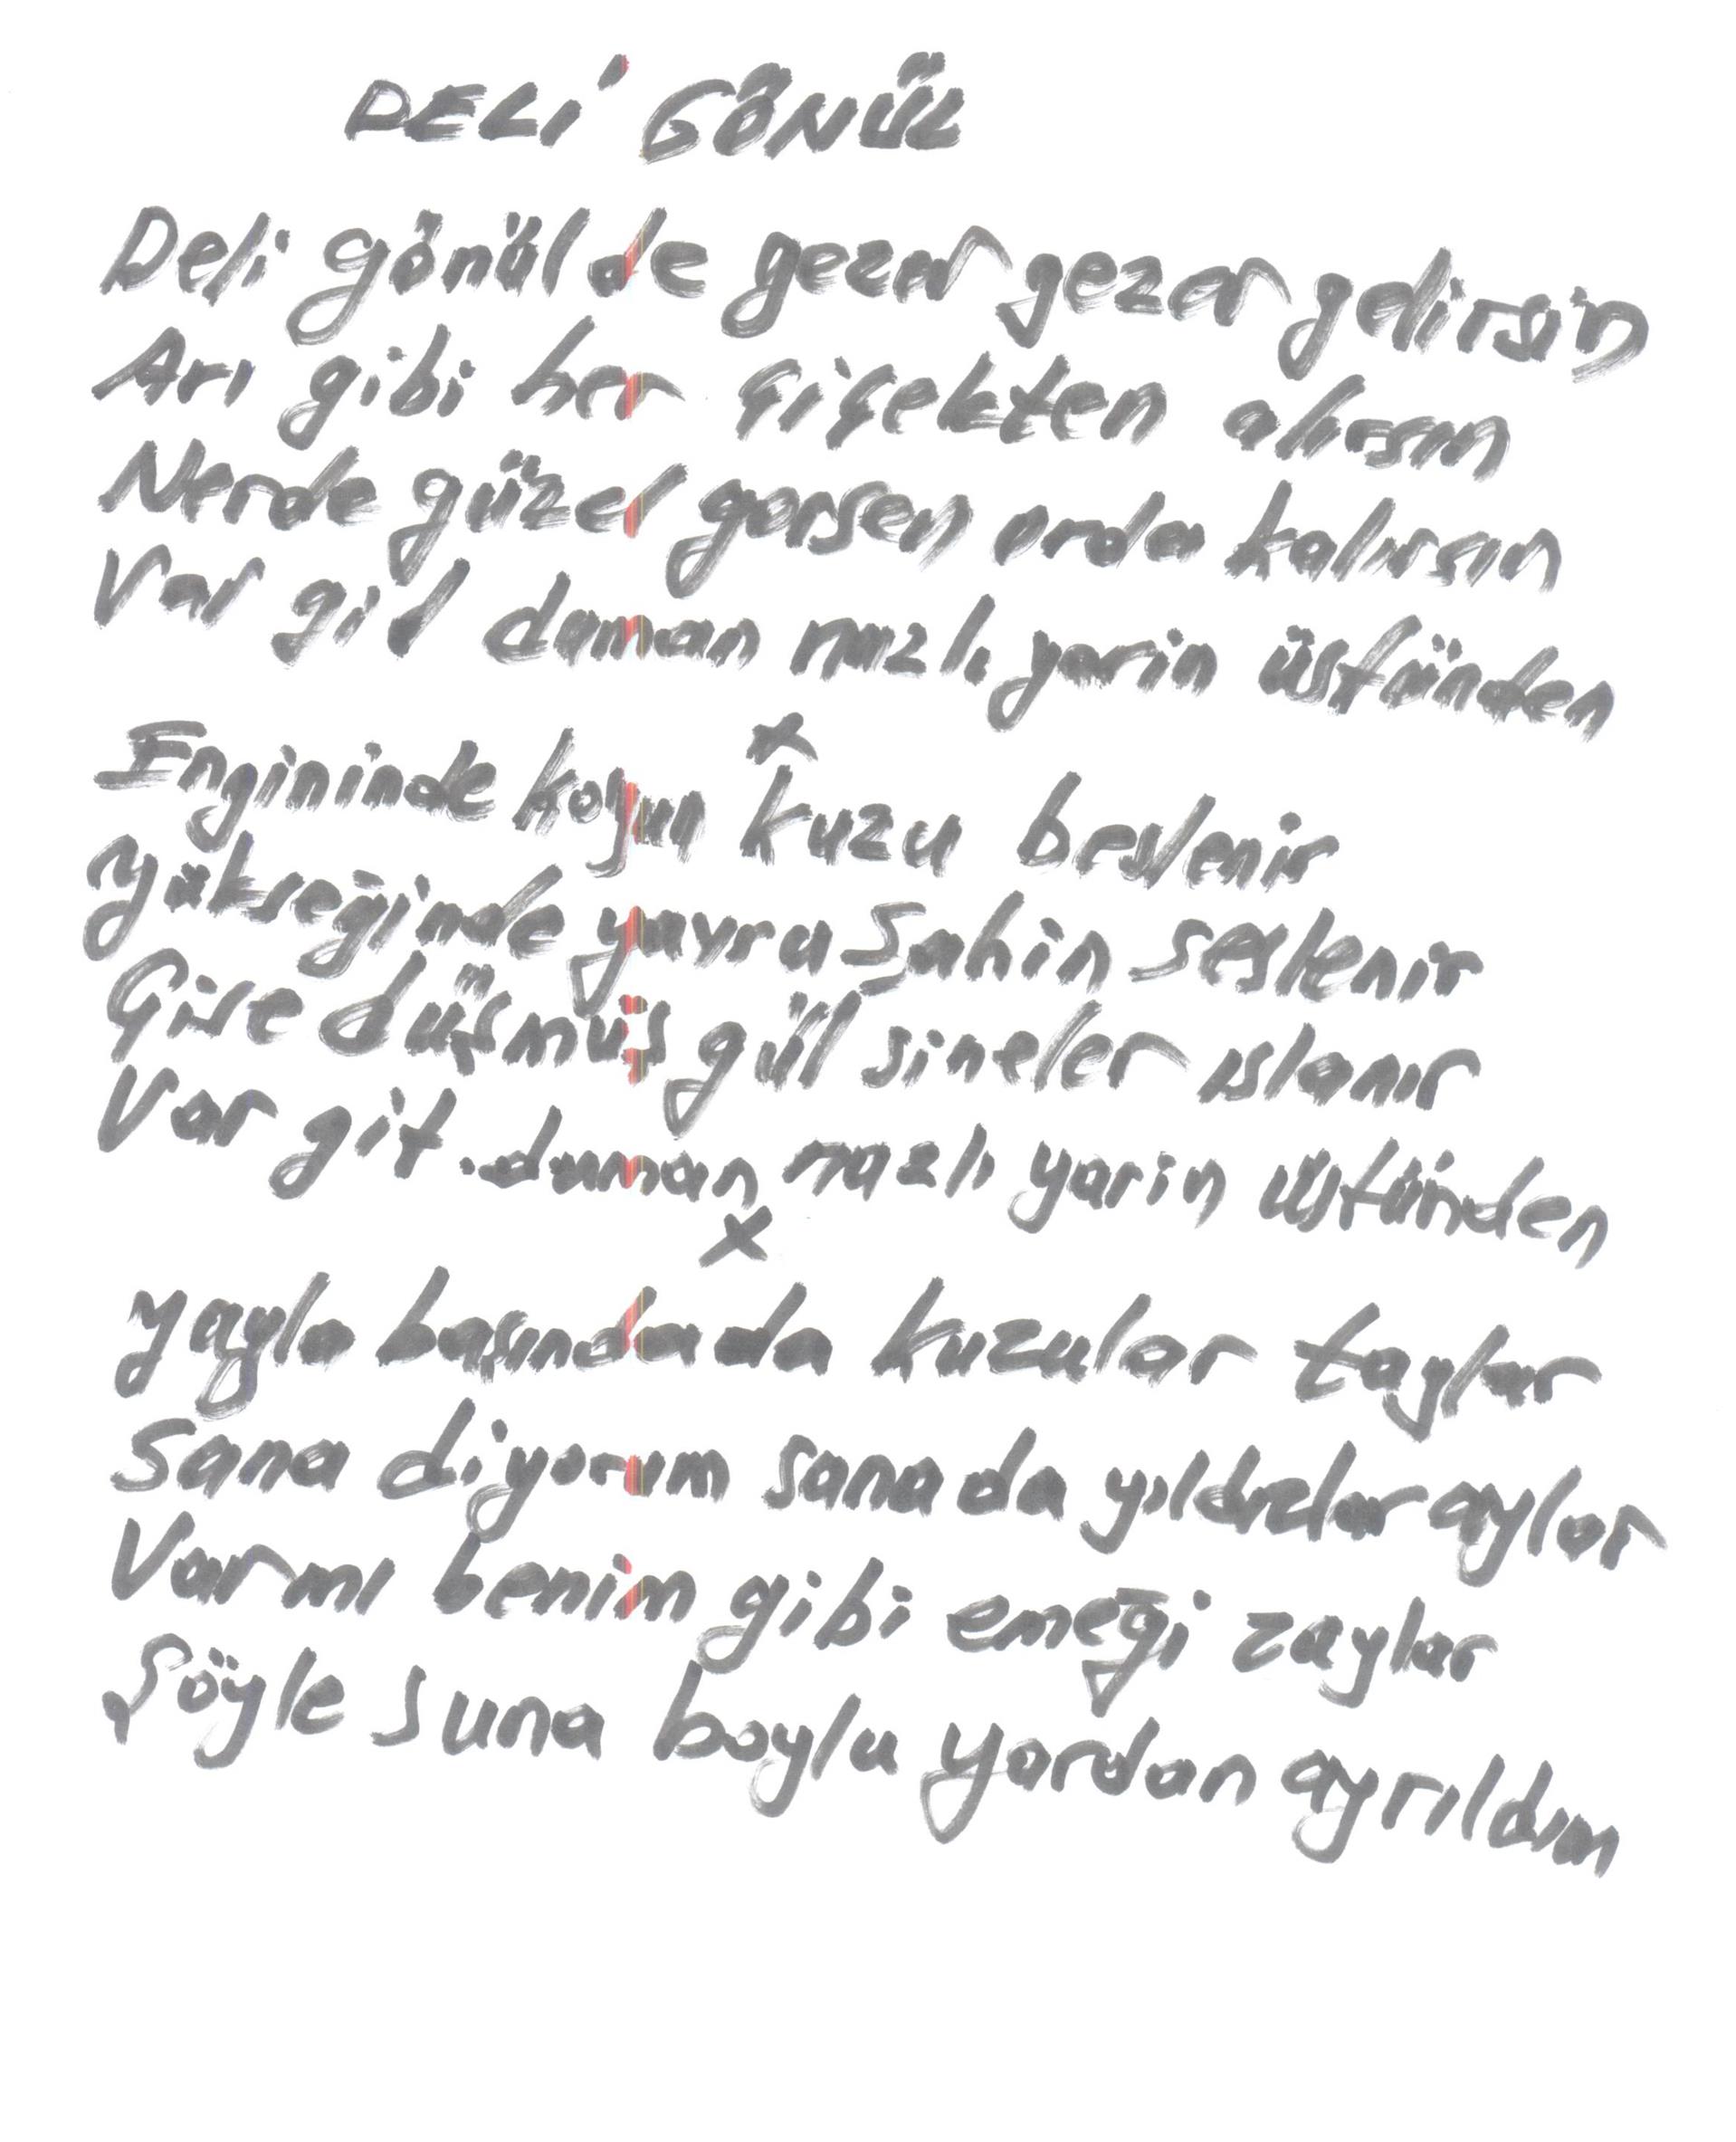 DELİ GÖNÜL
Deli gönül de gezer gezer gelirsin
Arı gibi her çiçekten alırsın
Nerde güzel görsen orda kalırsın
Var git duman nazlı yarin üstünden
x
Engininde koyun kuzu beslenir
Yükseğinde yavru Şahin seslenir
Çise düşmüş gül sineler ıslanır
Var git duman nazlı yarin üstünden
x
Yayla başındada kuzular taylar
Sana diyorum sana da yıldızlar aylar
Varmı benim gibi emeği zaylar
Şöyle suna boylu yardan ayrıldım